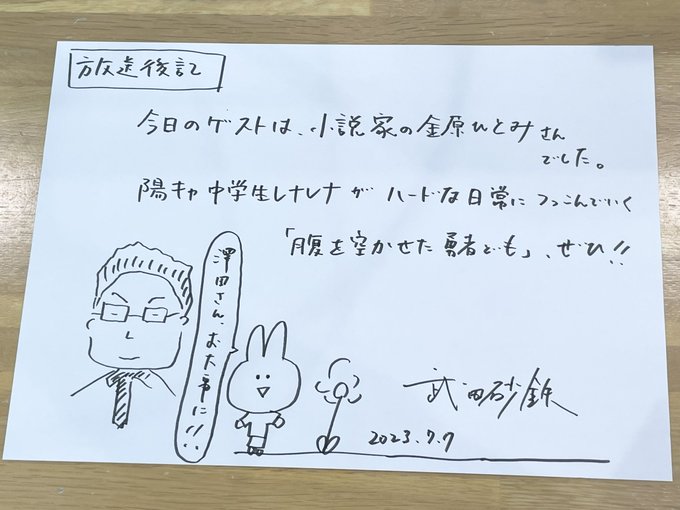 放送後記
今日のゲストは、小説家の金原ひとみさん
でした。
陽キャ中学生レナレナがハードな日常につっこんでいく
「腹を空かせた勇者ども」、ぜひ!!
澤田さん、お大事に!!
武田砂鉄
2023.7.7